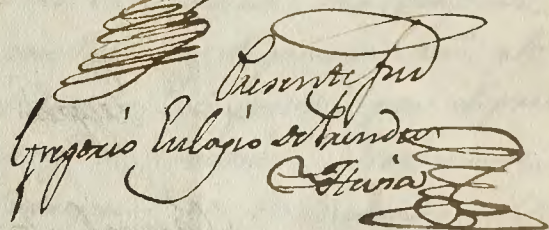 Presente fui
Gregorio Eulogio de